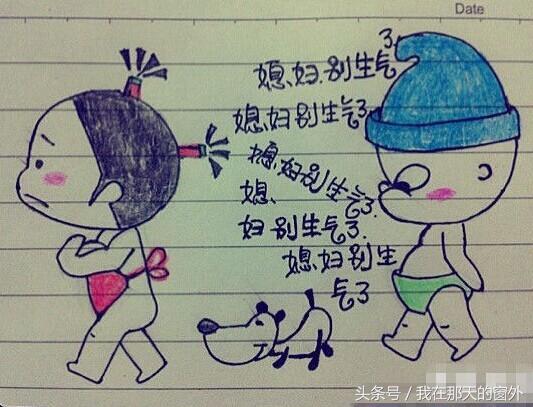 Date
媳、妇、别生气了
媳、妇别生气了
媳、妇别生气了.
媳、
妇别生气了.
媳、妇别生
气了
头条号 / 我在那天的窗外